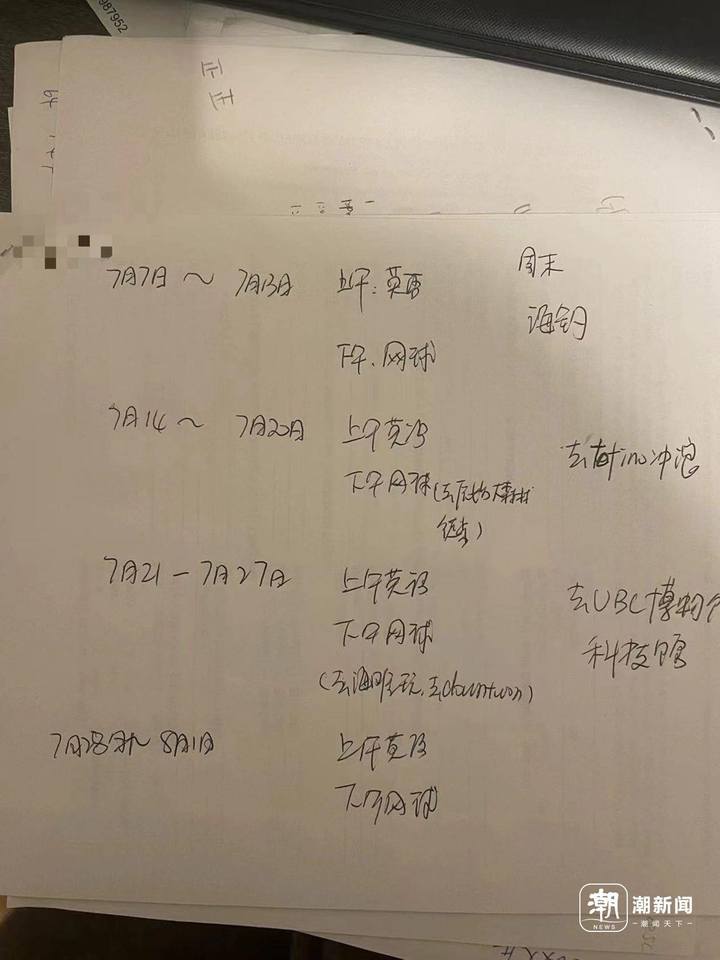 987952
正
正
7月7日～7月13日 上午：英语 周末
海钓
下午、网球
7月14～7月20日 上午英语
去 冲浪
下午网球(去
结束)
7月21－7月27日 上午英语
去UBC博物
下午网球
科技馆
(去海 玩,去
7月28 ～8月1日 上午英语
下午网球
潮 潮新闻
NEWS －潮闻天下－